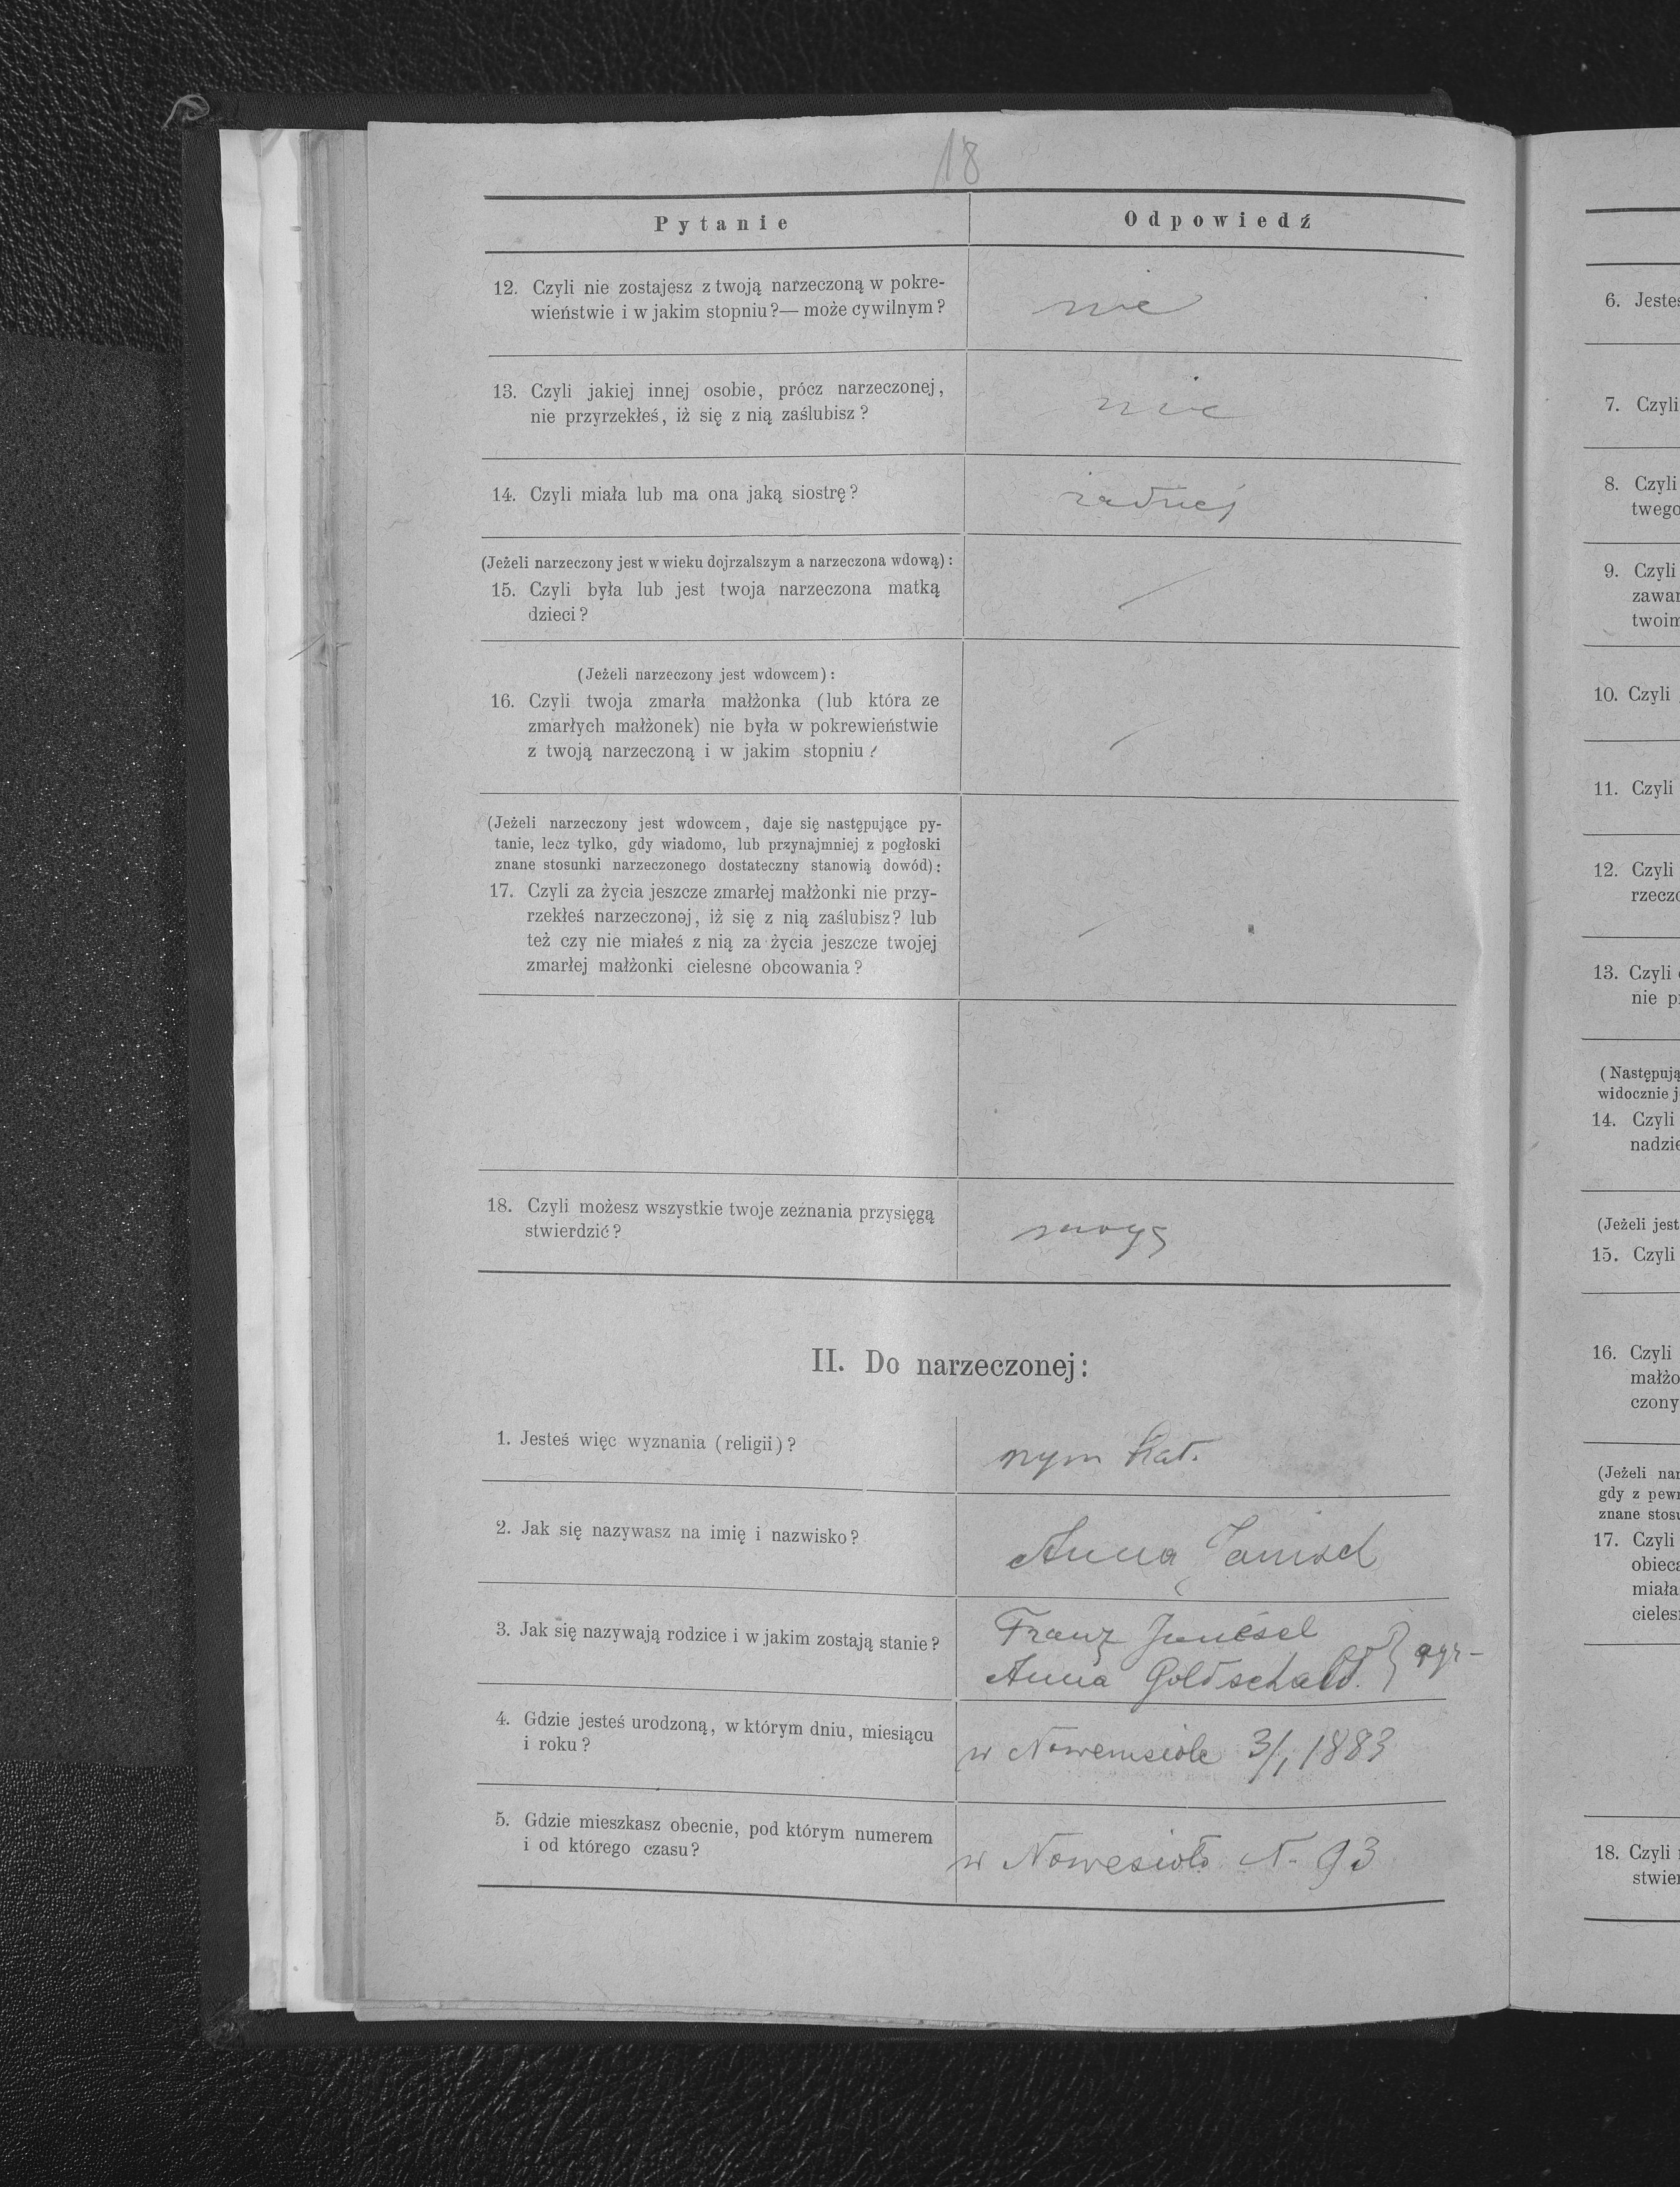 18
Pytanie
Odpowiedź
12. Czyli nie zostajesz z twoją narzeczoną w pokre-
wieństwie i w jakim stopniu?— może cywilnym?
nie
13. Czyli jakiej innej osobie, prócz narzeczonej,
nie przyrzekłeś, iż się z nią zaślubisz?
nie
14. Czyli miała lub ma ona jaką siostrę?
żadnej
(Jeżeli narzeczony jest w wieku dojrzalszym a narzeczona wdową):
15. Czyli była lub jest twoja narzeczona matką
dzieci?
(Jeżeli narzeczony jest wdowcem):
16. Czyli twoja zmarła małżonka (lub która ze
zmarłych małżonek) nie była w pokrewieństwie
z twoją narzeczoną i w jakim stopniu?
(Jeżeli narzeczony jest wdowcem, daje się następujące py-
tanie, lecz tylko, gdy wiadomo, lub przynajmniej z pogłoski
znane stosunki narzeczonego dostateczny stanowią dowód):
17. Czyli za życia jeszcze zmarłej małżonki nie przy-
rzekłeś narzeczonej, iż się z nią zaślubisz? lub
też czy nie miałeś z nią za życia jeszcze twojej
zmarłej małżonki cielesne obcowania?
18. Czyli możesz wszystkie twoje zeznania przysięgą
stwierdzić?
mogę
II. Do narzeczonej:
1. Jesteś więc wyznania (religii)?
rzym kat.
2. Jak się nazywasz na imię i nazwisko?
Anna
3. Jak się nazywają rodzice i w jakim zostają stanie?
Franz
Anna
4. Gdzie jesteś urodzoną, w którym dniu, miesiącu
i roku?
w Nowemsiole 3/1 1883
5. Gdzie mieszkasz obecnie, pod którym numerem
i od którego czasu?
w Nowesioło N. 93
6. Jesteś
7. Czyli
8. Czyli
twego
9. Czyli
zawar
twoim
10. Czyli
11. Czyli
12. Czyli
rzeczo
13. Czyli
nie p
(Następują
widocznie j
14. Czyli
nadzie
(Jeżeli jest
15. Czyli
16. Czyli
małżo
czony
(Jeżeli nar
gdy z pewn
znane stosu
17. Czyli
obieca
miała
cieles
18. Czyli
stwier